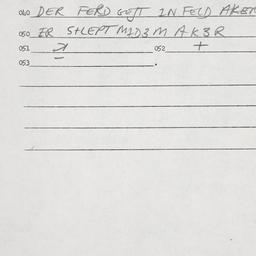 040 DER FERD GETT IN FELD AKER
050 ER SHLEPT MIDEM AKER
051 052 +
053 .